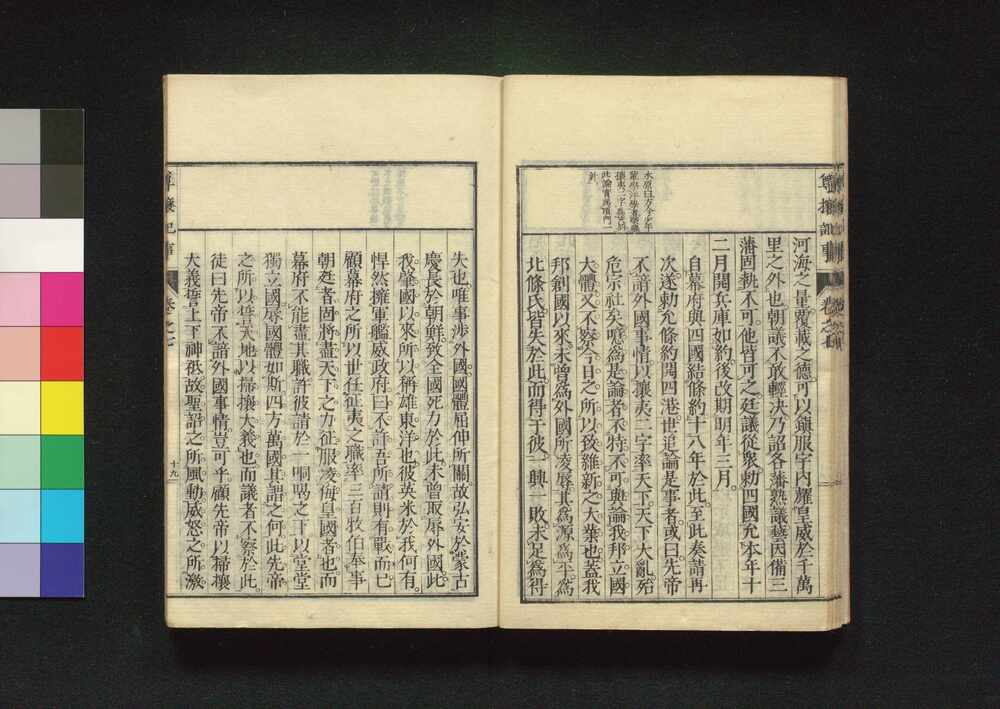 水原曰方今少年
此論實爲頂門一
針
河海之量覆載之德可以鎭服宇内耀皇威於千萬
里之外也朝議不敢輕決乃詔各藩熟議藝因備三
藩固執不可他皆可之廷議從衆勅四國允本年十
二月開兵庫如約後改期明年三月
自幕府與四國結條約十八年於此至此奏請再
次遂勅允條約開四港世追論是事者或曰先帝
不諳外國事情以攘夷二字率天下天下大亂殆
危宗社矣噫爲是論者不特不可與論我邦立國
大體又不察今日之所以致維新之大業也蓋我
邦創國以來未曾爲外國所凌辱其爲源爲平爲
北條氏皆失於此而得于彼一興一敗未足爲得
尊攘紀事
卷之七
失也唯事涉外國國體屈伸所關故弘安於蒙古
慶長於朝鮮致全國死力於此未曾取辱外國此
我肇國以來所以稱雄東洋也彼英米於我何有
悍然擁軍艦威政府曰不許吾所請則有戰而已
顧幕府之所以世任征夷之職率三百牧伯奉事
朝廷者固將盡天下之力征服凌侮皇國者也而
幕府不能盡其職許彼請於一恫喝之下以堂堂
獨立國辱國體如斯四方萬國其謂之何此先帝
之所以誓天地以掃攘大義也而議者不察於此
徒曰先帝不諳外國事情豈可乎顧先帝以掃攘
大義誓上下神祇故聖詔之所風動威怒之所激
尊攘紀事
卷之七
十九